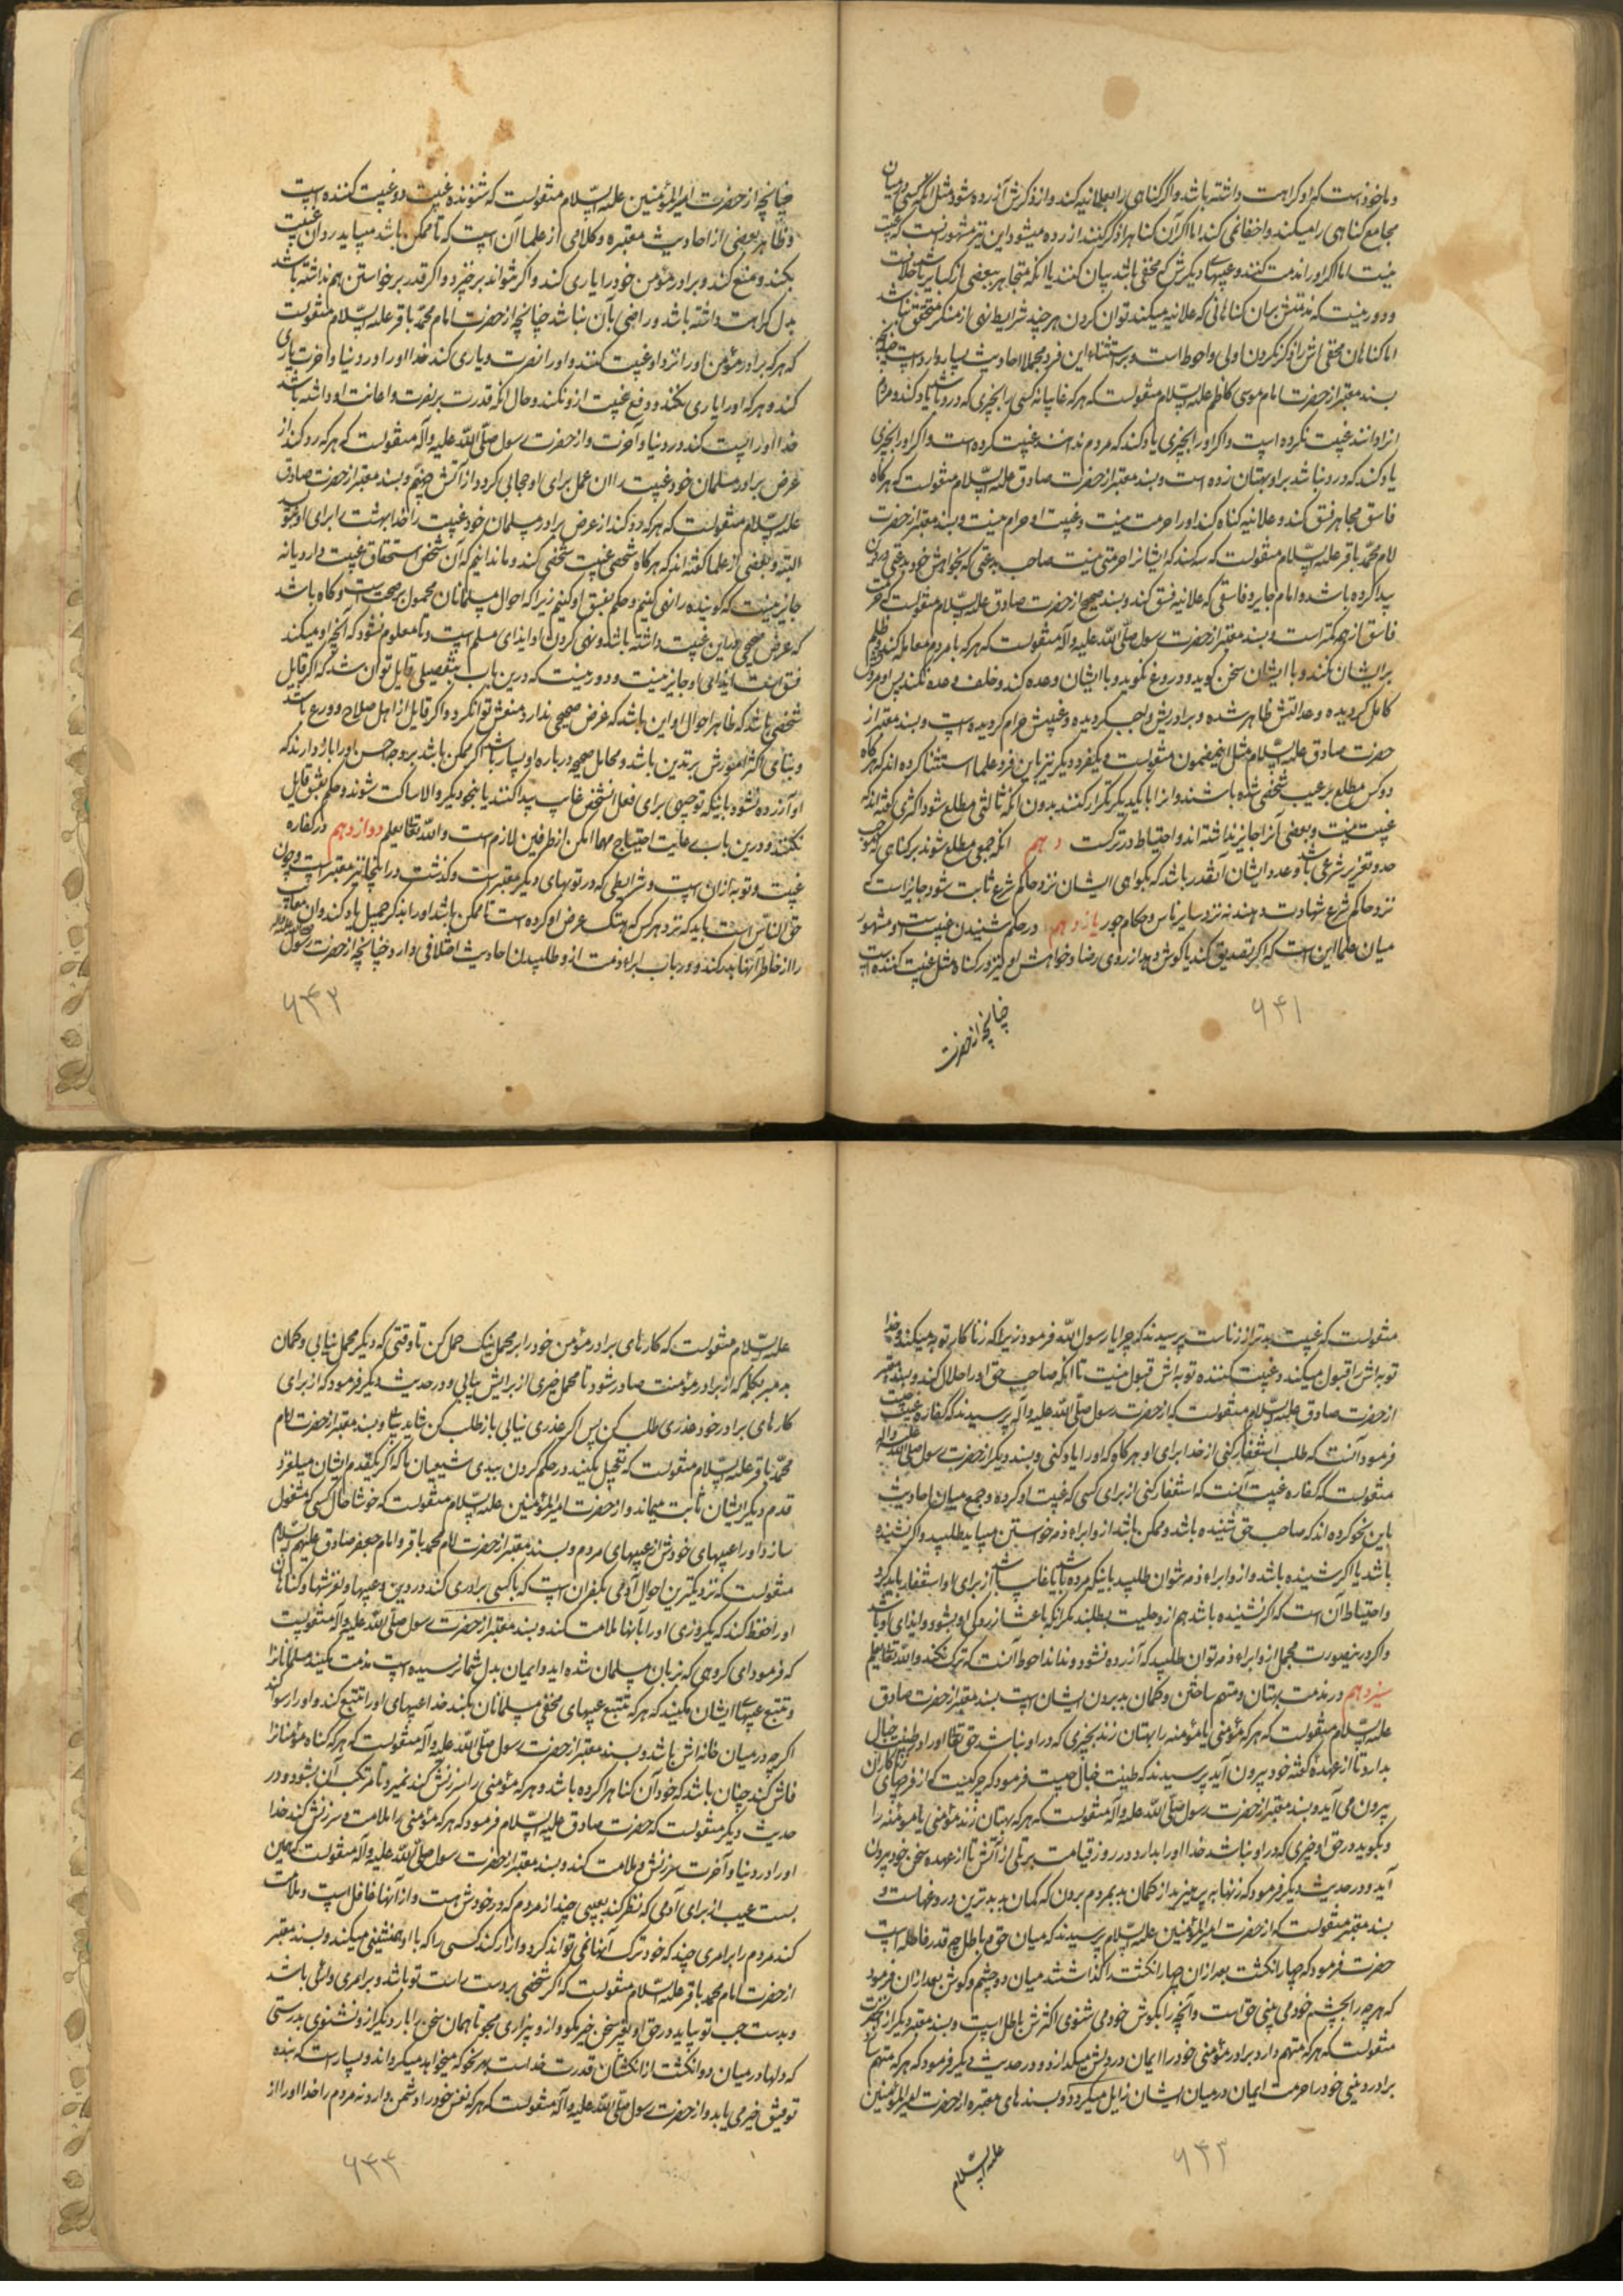 و ماخوذ است که او کراهت داشته باشد و اگر گناهی را بعلانیه کند و از ذکرش آزرده شود مثل آنکه کسی در میان
مجامع گناهی را میکند و اخفا نمی کند اما اگر آن گناه را ذکر کنند آزرده میشود این نیز مشهور است که غیبت
نیست اما اگر او را مذمت کنند و عیبهای دیگرش که مخفی باشد بیان کنند یا آنکه متجاهر ببعضی از کبایر باشد خلافست
و دور نیست که مذمتش بهمان گناهانی که علانیه میکند توان کردن هر چند شرایط نهی از منکر متحقق نباشد
اما گناهان مخفی اش را ذکر نکردن اولی و احوط است و بر استثناء این فرد مجملا احادیث بسیار وارد است چنانچه
بسند معتبر از حضرت امام موسی کاظم علیه السّلام منقولست که هر که غایبانه کسی را بچیزی که درو باشد یاد کند و مردم
آنرا دانند غیبت نکرده است و اگر او را بچیزی یاد کند که مردم ندانند غیبت کرده است و اگر او را بچیزی
یاد کند که درو نباشد براو بهتان زده است و بسند معتبر از حضرت صادق علیه السّلام منقولست که هرگاه
فاسق مجاهر فسق کند و علانیه گناه کند او را حرمت نیست و غیبت او حرام نیست و بسند معتبر از حضرت
امام محمّد باقر علیه السّلام منقولست که سه کسند که ایشانرا حرمتی نیست صاحب بدعتی که بخواهش خود بدعتی در دین
پیدا کرده باشد و امام جابر و فاسقی که علانیه فسق کند و بسند صحیح از حضرت صادق علیه السّلام منقولست که حرمت
فاسق از همه کمتر است و بسند معتبر از حضرت رسول صلّی اللّه علیه و آله منقولست که هر که با مردم معامله کند و ظلم
بر ایشان نکند و با ایشان سخن گوید و دروغ نگوید و با ایشان وعده کند و خلف وعده نکند پس او مروتش
کامل گردیده و عدالتش ظاهر شده و برادریش واجب گردیده و غیبتش حرام گردیده است و بسند معتبر از
حضرت صادق علیه السّلام مثل اینمضمون منقولست و یکفرد دیگر نیز باین فرد علما استثنا کرده اند که هرگاه
دو کس مطلع بر عیب شخصی شده باشند و آنرا با یکدیگر تکرار کنند بدون آنکه ثالثی مطلع شود اکثری گفته اند که
غیبت نیست و بعضی آنرا جایز نداشته اند و احتیاط در ترکست دهم آنکه جمعی مطلع شوند بر گناهی که موجب
حد و تعزیر شرعی باشد و عدد ایشان آنقدر باشد که بگواهی ایشان نزد حاکم شرع ثابت شود جایز است که
نزد حاکم شرع شهادت دهند نه نزد سایر ناس و حکام جور یازدهم در حکم شنیدن غیبت است مشهور
میان علما این است که اگر تصدیق کند یا گوش دهد از روی رضا و خواهش او نیز در گناه مثل غیبت کننده است
چنانچه از حضرت
۶۴۱
چنانچه از حضرت امیرالمؤمنین علیه السّلام منقولست که شنونده غیبت دو غیبت کننده است
و ظاهر بعضی از احادیث معتبره و کلام بعضی از علما آن است که تا ممکن باشد میباید رد آن غیبت
بکند و منع کند و برادر مؤمن خود را یاری کند و اگر نتواند برخیزد و اگر قدر برخواستن هم نداشته باشد
بدل کراهت داشته باشد و راضی بآن نباشد چنانچه از حضرت امام محمّد باقر علیه السّلام منقولست
که هر که برادر مؤمن او را نزد او غیبت کنند و او را نصرت و یاری کند خدا او را در دنیا و آخرت یاری
کند و هر که او را یاری نکند و دفع غیبت ازو نکند و حال آنکه قدرت بر نصرت و اعانت او داشته باشد
خدا او را پست کند در دنیا و آخرت و از حضرت رسول صلّی اللّه علیه و آله منقولست که هر که رد کند از
عرض برادر مسلمان خود غیبت را آن عمل برای او حجابی گردد از آتش جهنّم و بسند معتبر از حضرت صادق
علیه السّلام منقولست که هر که رد کند از عرض برادر مسلمان خود غیبت را خدا بهشت را برای او بنویسد
البته و بعضی از علما گفته اند که هرگاه شخصی غیبت شخصی کند و ما ندانیم که آن شخص استحقاق غیبت دارد یا نه
جایز نیست که گوینده را نهی کنیم و حکم بفسق او کنیم زیرا که احوال مسلمانان محمول بر صحت است و گاه باشد
که غرض صحیحی در این غیبت داشته باشد و نهی کردن او ایذای مسلم است و تا معلوم نشود که آنچه او میکند
فسق است ایذای او جایز نیست و دور نیست که درین باب بتفصیلی قایل توان شد که اگر قایل
شخصی باشد که ظاهر احوال او این باشد که غرض صحیحی ندارد منعش توان کرد و اگر قایل از اهل صلاح و ورع باشد
و بنای اکثر امورش بر تدین باشد و محامل صحیحه درباره او بسیار باشد اگر ممکن باشد بر وجه حسن او را باز دارند که
او آزرده نشود باینکه توجیهی برای فعل آنشخص غایب پیدا کنند یا بنحو دیگر و الا ساکت شوند و حکم بفسق قایل
نکنند و درین باب رعایت احتیاج مهما امکن از طرفین لازم است و اللّه تعالی یعلم دوازدهم در کفاره
غیبت و توبه از آن است و شرایطی که در توبهای دیگر معتبر است و گذشت در اینجا نیز معتبر است و چون
حق النّاس است باید که نزد هر کس که هتک عرض او کرده است تا ممکن باشد او را بذکر جمیل یاد کند و آن معایب
را از خاطر آنها بدر کند و در باب ابراء ذمت ازو طلبیدن احادیث اختلافی دارد چنانچه از حضرت رسول صلی اللّه علیه و آله
۶۴۲
منقولست که غیبت بدتر از زناست پرسیدند که چرا یا رسول اللّه فرمود زیرا که زناکار توبه میکند و خدا
توبه اش را قبول میکند و غیبت کننده توبه اش قبول نیست تا آنکه صاحب حق او را حلال کند و بسند معتبر
از حضرت صادق علیه السّلام منقولست که از حضرت رسول صلّی اللّه علیه و آله پرسیدند که کفاره غیبت چیست
فرمود آنست که طلب استغفار کنی از خدا برای او هرگاه که او را یاد کنی و بسند دیگر از حضرت رسول صلی اللّه علیه و آله
منقولست که کفاره غیبت آنست که استغفار کنی از برای کسی که غیبت او کرده و جمع میان احادیث
باین نحو کرده اند که صاحب حق شنیده باشد و ممکن باشد ازو ابراء ذمه خواستن میباید طلبید و اگر نشنیده
باشد یا اگر شنیده باشد و ازو ابراء ذمه نتوان طلبید باینکه مرده باشد یا غایب باشد از برای او استغفار باید کرد
و احتیاط آن است که اگر نشنیده باشد هم ازو حلیت بطلبند مگر آنکه باعث آزردگی او بشود و ایذای او باشد
و اگر درینصورت مجمل ازو ابراء ذمه توان طلبید که آزرده نشود و نداند احوط آنست که ترک نکند و اللّه تعالی یعلم
سیزدهم در مذمت بهتان و متهم ساختن و گمان بد بردن ایشان است بسند معتبر از حضرت صادق
علیه السّلام منقولست که هر که مؤمنی یا مؤمنه را بهتان زند بچیزی که در او نباشد حق تعالی او را در طینت خبال
بدارد تا از عهده گفته خود بیرون آید پرسیدند که طینت خبال چیست فرمود که چرکیست که از فرجهای زناکاران
بیرون می آید و بسند معتبر از حضرت رسول صلّی اللّه علیه و آله منقولست که هر که بهتان زند مؤمنی یا مؤمنه را
و بگوید در حق او چیزی که در او نباشد خدا او را بدارد در روز قیامت بر تلی از آتش تا از عهده سخن خود بیرون
آید و در حدیث دیگر فرمود که زنهار بپرهیزید از گمان بد بمردم بردن که گمان بد بدترین دروغهاست و
بسند معتبر منقولست که از حضرت امیرالمؤمنین علیه السّلام پرسیدند که میان حق و باطل چه قدر فاصله است
حضرت فرمود که چهار انگشت بعد از آن چهار انگشت را گذاشتند میان دو چشم و گوش بعد از آن فرمود
که هر چه را بچشم خود می بینی حق است و آنچه را بگوش خود می شنوی اکثرش باطل است و بسند معتبر دیگر از آنحضرت
منقولست که هر که متهم دارد برادر مؤمنی خود را ایمان در دلش میگدازد و در حدیث دیگر فرمود که هر که متهم سازد
برادر دینی خود را حرمت ایمان در میان ایشان زایل میگردد و بسندهای معتبره از حضرت امیرالمؤمنین
علیه السّلام
۶۴۳
علیه السّلام منقولست که کارهای برادر مؤمن خود را بر محمل نیک حمل کن تا وقتی که دیگر محمل نیابی و گمان
بد مبر بکلمه که از برادر مؤمنت صادر شود تا محمل خیری از برایش بیابی و در حدیث دیگر فرمود که از برای
کارهای برادر خود عذری طلب کن پس اگر عذری نیابی باز طلب کن شاید بیابی و بسند معتبر از حضرت امام
محمّد باقر علیه السّلام منقولست که تعجیل مکنید در حکم کردن ببدی شیعیان ما که اگر یکقدم ایشان میلغزد
قدم دیگر ایشان ثابت میماند و از حضرت امیرالمؤمنین علیه السّلام منقولست که خوشا حال کسی که مشغول
سازد او را عیبهای خودش از عیبهای مردم و بسند معتبر از حضرت امام محمد باقر و امام جعفر صادق علیهم السّلام
منقولست که نزدیکترین احوال آدمی بکفر آن است که با کسی برادری کند در دین و عیبها و لغزشها و گناهان
او را حفظ کند که یکروزی او را بآنها ملامت کند و بسند معتبر از حضرت رسول صلّی اللّه علیه و آله منقولست
که فرمود ای گروهی که بزبان مسلمان شده اید و ایمان بدل شما نرسیده است مذمت مکنید مسلمانانرا
و تتبع عیبهای ایشان مکنید که هر که تتبع عیبهای مخفی مسلمانان بکند خدا عیبهای او را تتبع کند و او را رسوا کند
اگر چه در میان خانه اش باشد و بسند معتبر از حضرت رسول صلّی اللّه علیه و آله منقولست که هر که گناه مؤمنانرا
فاش کند چنان باشد که خود آن گناه را کرده باشد و هر که مؤمنی را سرزنش کند نمیرد تا مرتکب آن بشود و در
حدیث دیگر منقولست که حضرت صادق علیه السّلام فرمود که هر که مؤمنی را ملامت و سرزنش کند خدا
او را در دنیا و آخرت سرزنش و ملامت کند و بسند معتبر از حضرت رسول صلّی اللّه علیه و آله منقولست که همین
بست عیب از برای آدمی که نظر کند بعیبی چند از مردم که در خودش هست و از آنها غافل است و ملامت
کند مردم را بر امری چند که خود ترک آنها نمی تواند کرد و آزار کند کسی را که با او همنشینی میکند و بسند معتبر
از حضرت امام محمد باقر علیه السّلام منقولست که اگر شخصی بر دست راست تو باشد و بر امری و رائی باشد
و بدست چپ تو بیاید در حق او بغیر سخن خیر مگو و ازو بیزاری مجو تا همان سخن را بار دیگر ازو نشنوی بدرستی
که دلها در میان دو انگشت از انگشتان قدرت خداست بهر نحو که میخواهد میگرداند و بسیار است که بنده
توفیق خیر می یابد و از حضرت رسول صلّی اللّه علیه و آله منقولست که هر که نفس خود را دشمن دارد نه مردم را خدا او را از
۶۴۴